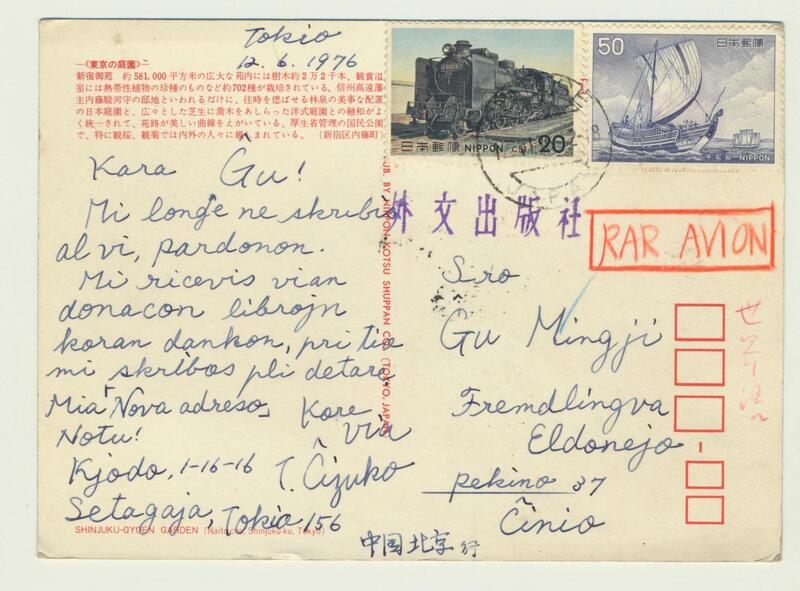 Tokio
12.6.1976
―《東京の庭園》―
新宿御苑 約581,000平方米の広大な苑内には樹木約2万2千本、観賞温
室には熱帯性植物の珍種のものなど約702種が栽培されている。信州高遠藩
主内藤駿河守の邸地といわれるだけに、往時を偲ばせる林泉の美事な配置
の日本庭園と、広々とした芝生に喬木をあしらった洋式庭園との融和がよ
く統一されて、苑路が美しい曲線をえがいている。厚生省管理の国民公園
で、特に観桜、観菊では内外の人々に親しまれている。(新宿区内藤町)
Kara Ĝu!
Mi longe ne skribis
al vi, pardonon.
Mi ricevis vian
donacon librojn
koran dankon, pri tio
mi skribos pli detare
Mia Nova adreso, Kore
Notu! via
Kjodo, 1-16-16 T. Ĉizuko
Setagaja, Tokio 156
SHINJUKU-GYOEN GARDEN (Naitocho, Shinjuku-ku, Tokyo)
PUB. BY NIPPON KOTSU SHUPPAN CO. (TOKYO, JAPAN)
日本郵便 NIPPON C51 20
50 日本郵便
千石船 NIPPON
JAPAN
外文出版社
PAR AVION
Sro
Gu Mingji
Fremdlingva
Eldonejo
Pekino 37
Ĉinio
中国北京行